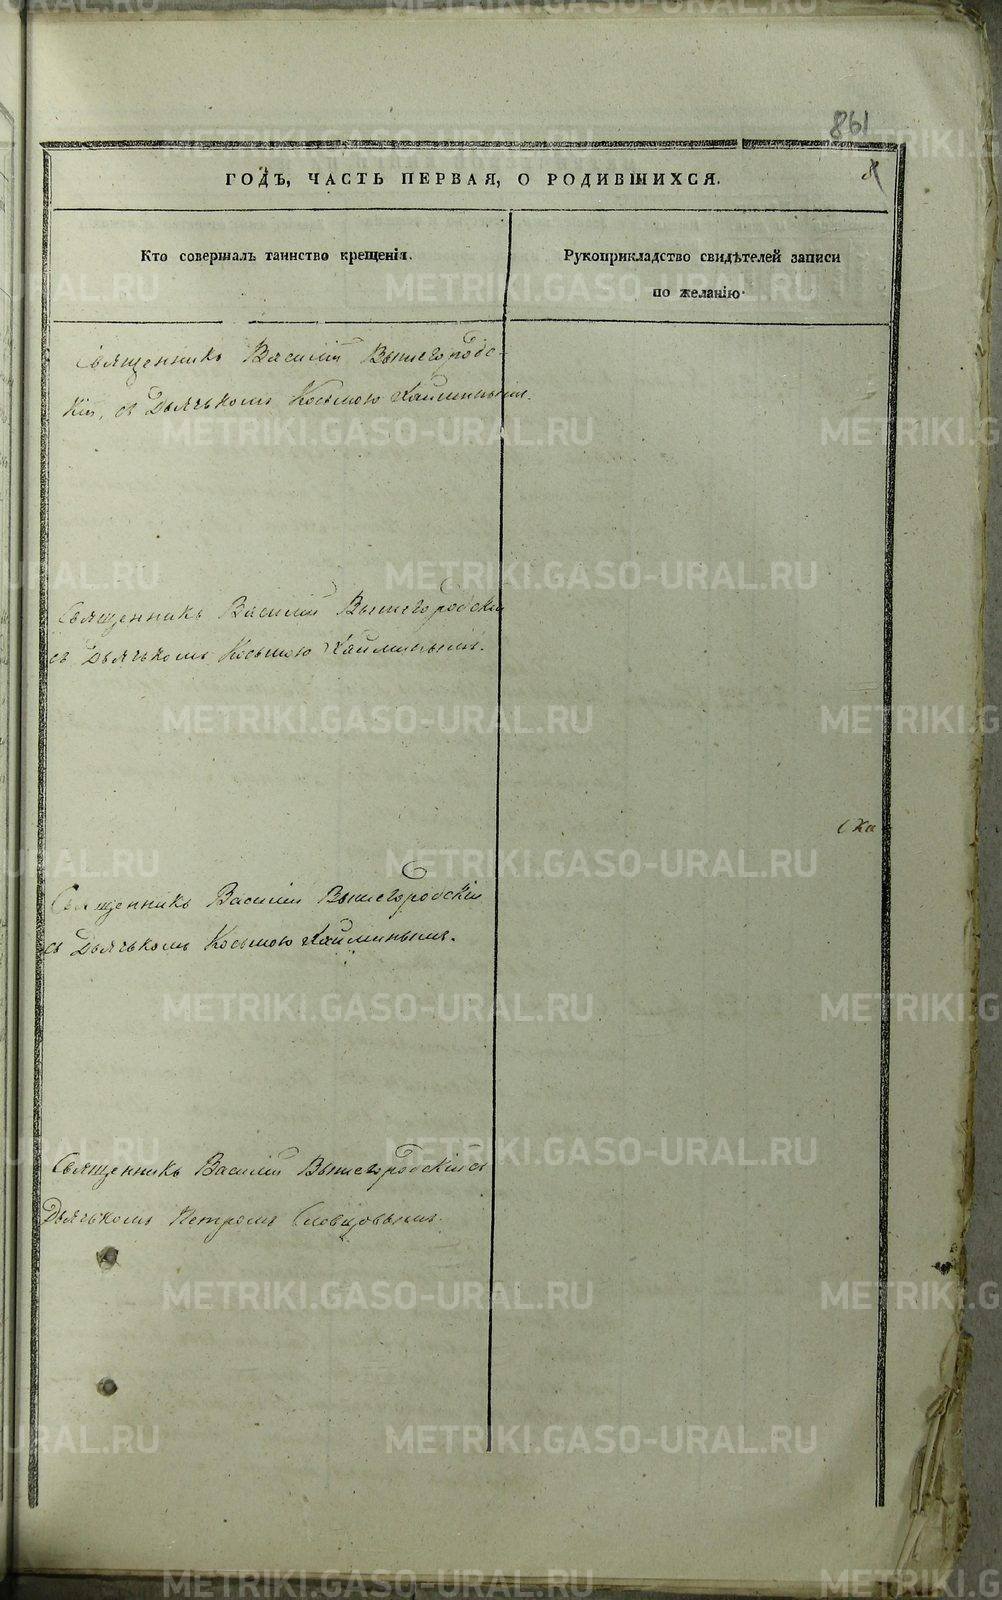 861
ГОДЪ, ЧАСТЬ ПЕРВАЯ, О РОДИВШИХСЯ.
Кто совершалъ таинство крещенія.
Рукоприкладство свидѣтелей записи
по желанію
Священникъ Василій Вышегородс-
кій, съ Дьячькомъ Косьмою Хайминымъ.
Священникъ Василій Вышегородскій
съ Дьячькомъ Косьмою Хайминымъ.
Священникъ Василій Вышегородскій
съ Дьячькомъ Косьмою Хайминымъ.
Священникъ Василій Вышегородскій съ
Дьячькомъ Петромъ Словцовымъ.
METRIKI.GASO-URAL.RU